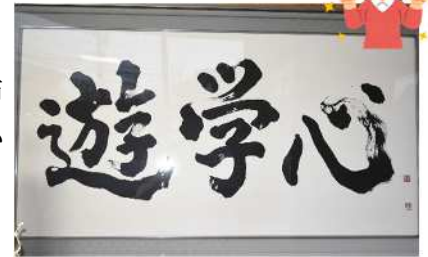 遊学心